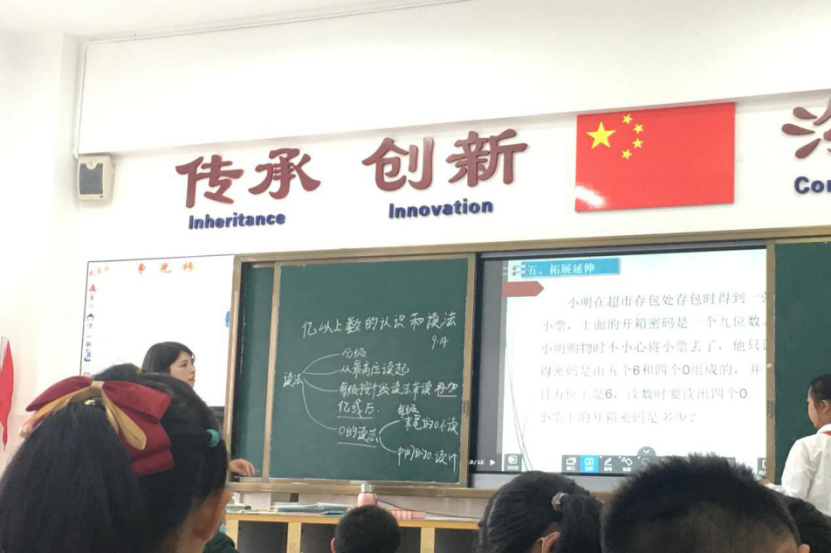 传承 创新
Inheritance
Innovation
亿以上数的认识和读法
9.4
读法
分级
从最高位读起
每级按个级读法来读再加
亿或万.
0的读法
每级
末尾的0不读
中间的0.读1个
五、拓展延伸
小明在超市存包处存包时得到一
小票，上面的开箱密码是一个九位数。
小明购物时不小心将小票丢了，他只
得密码是由五个6和四个0组成的，并
百万位上是6，读数时要读出四个0.
小票上的开箱密码是多少？